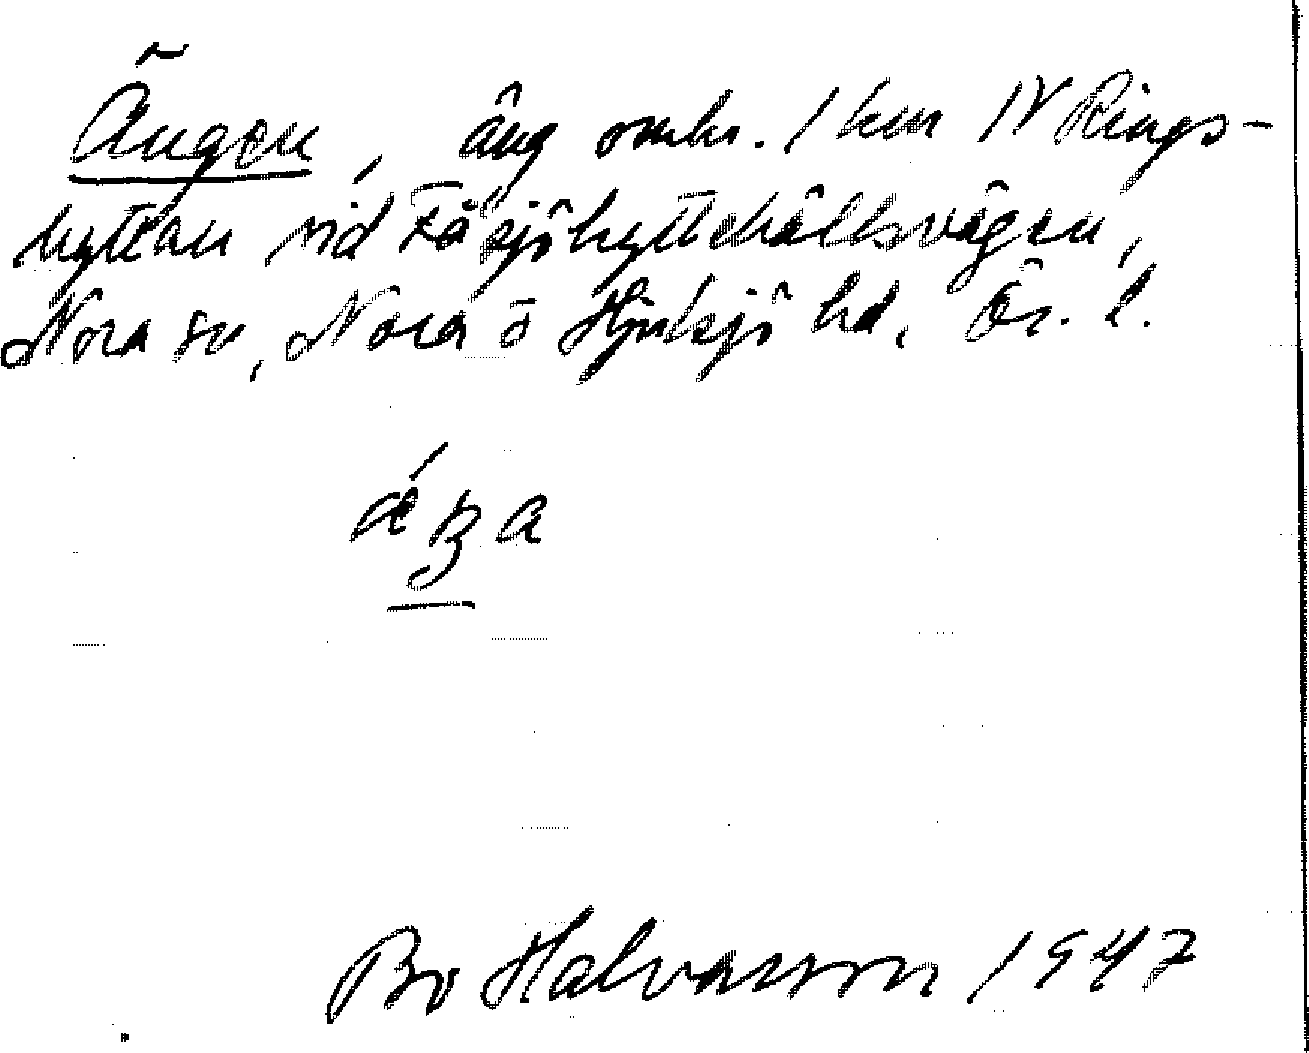 Ängen, äng omkr. 1 km N Rings-
hyttan vid Fåsjöhyttehällsvägen,
Nora sn, Nora o Hjulsjö hd. Ör. l.
Bo Halvarsson 1947